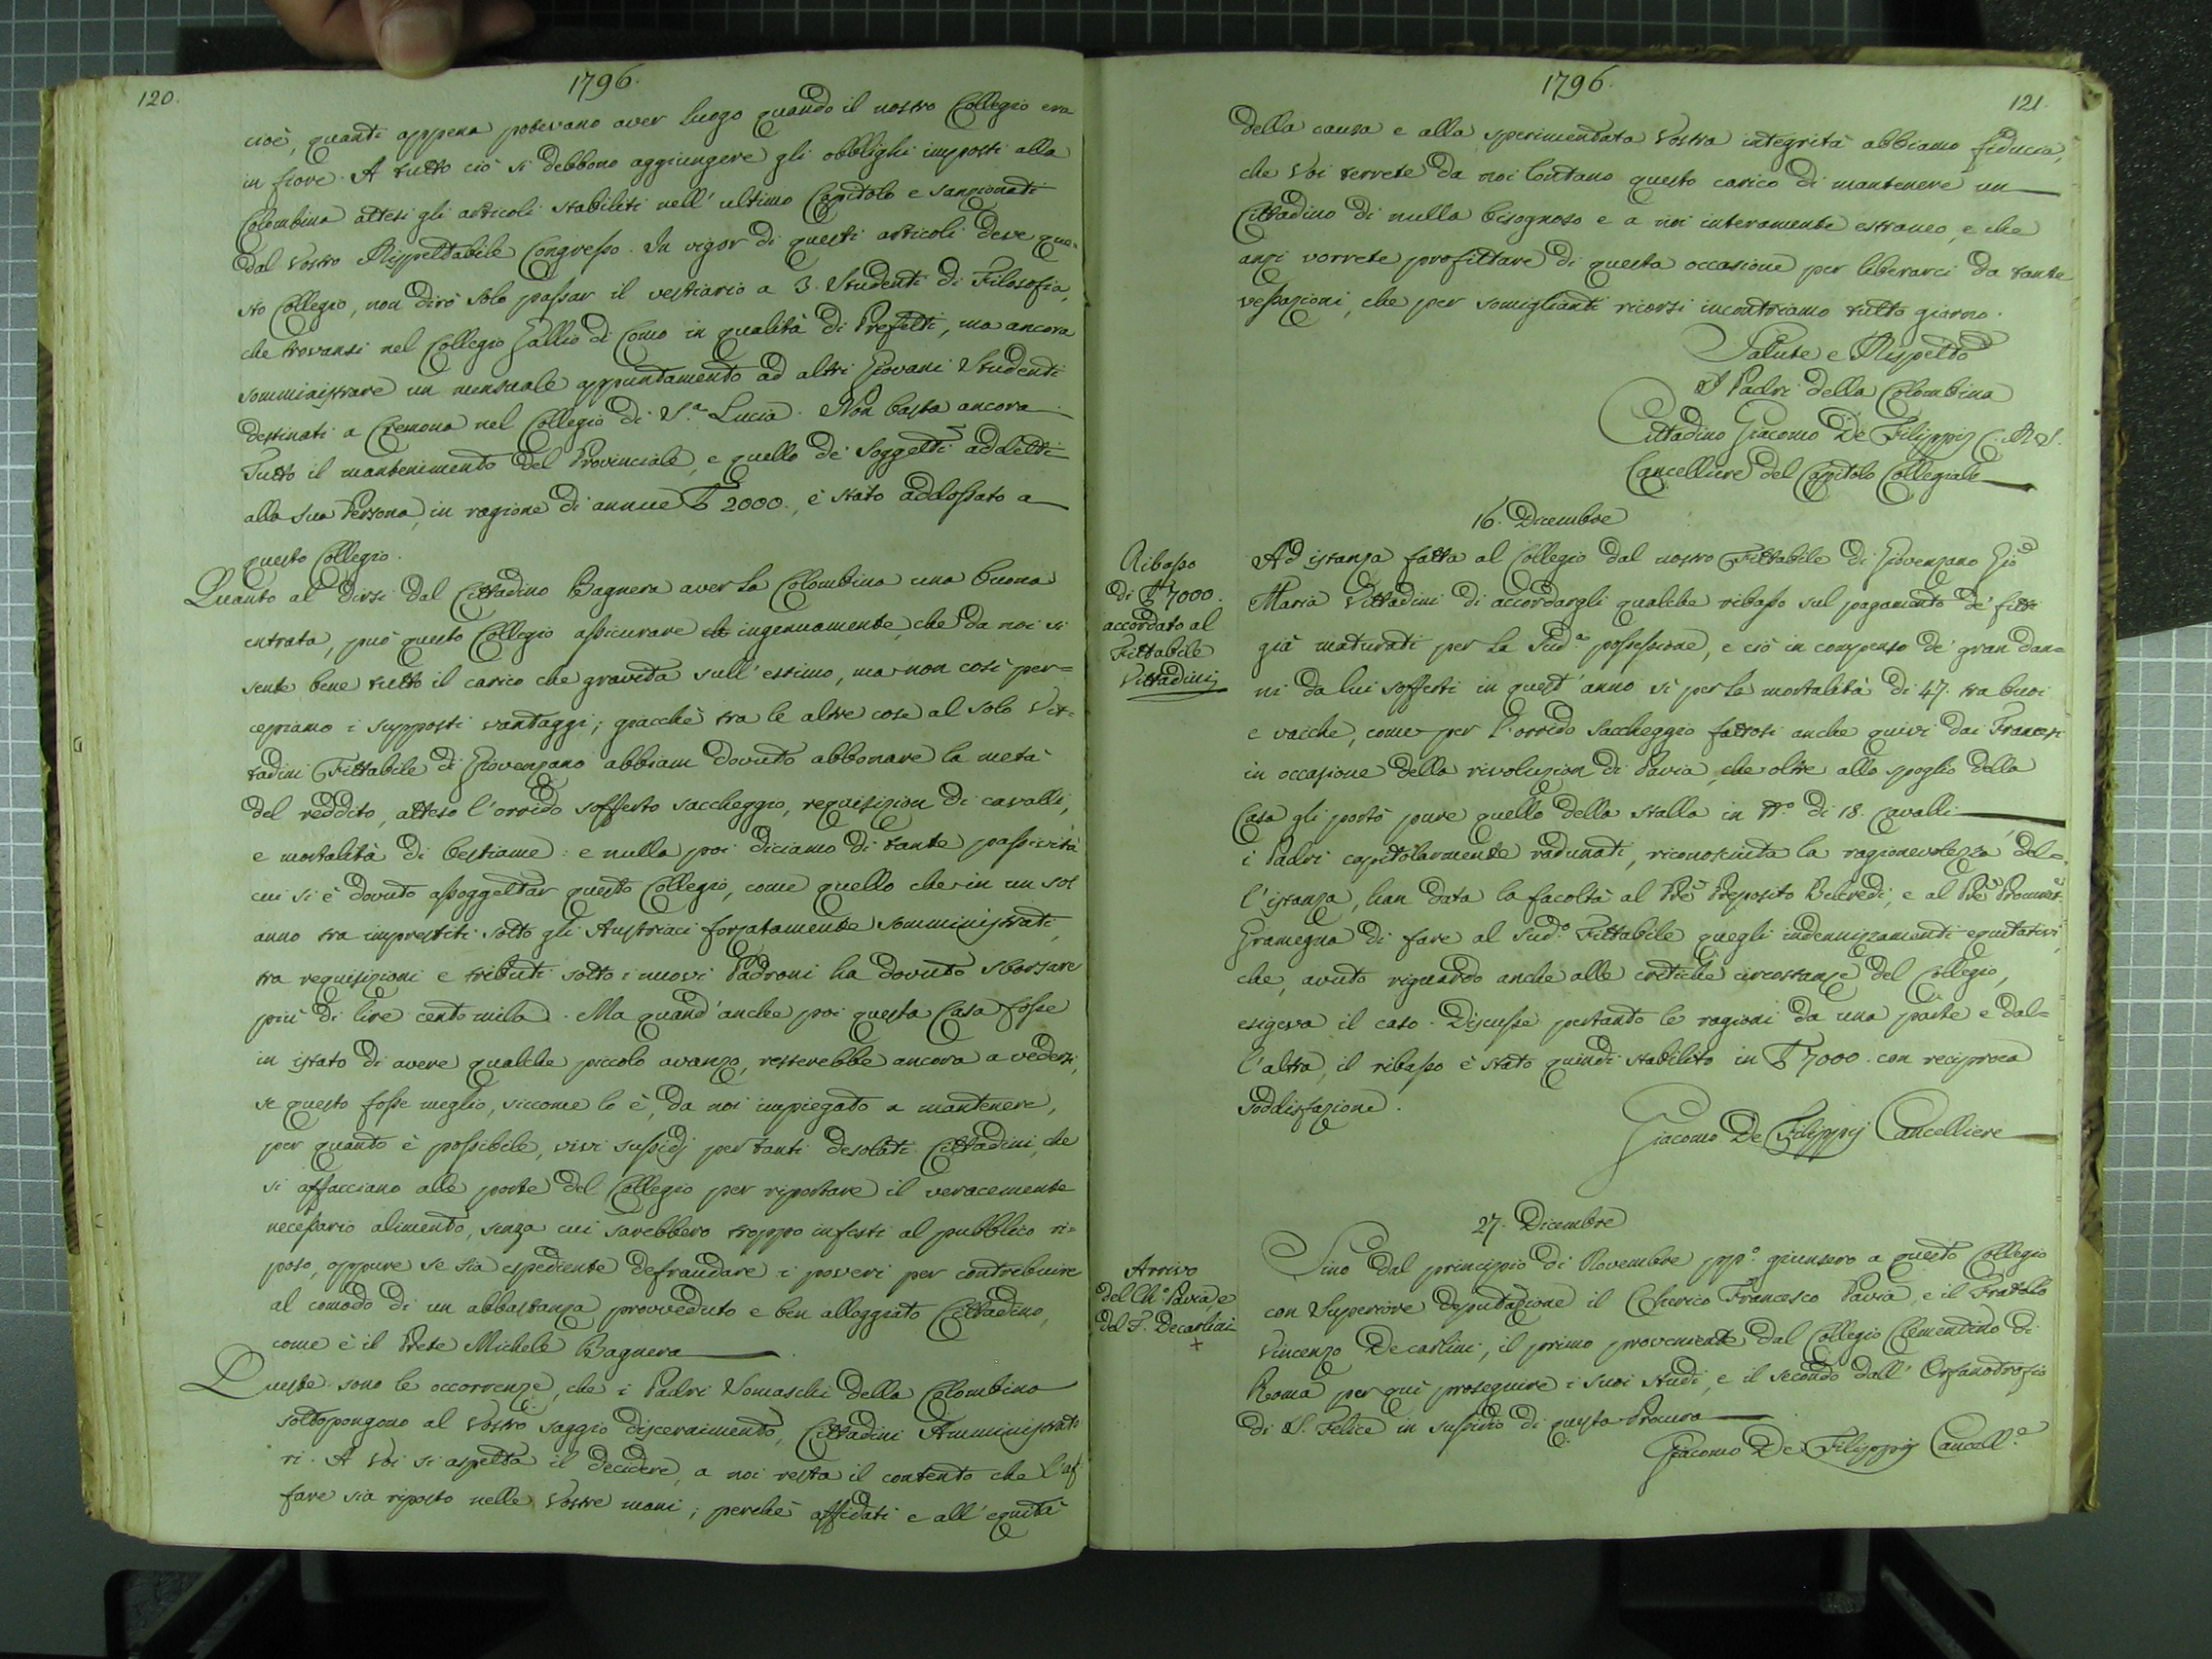 120.
1796.
cioè, quanti appena potevano aver luogo quando il nostro Collegio era
in fiore. A tutto ciò si debbono aggiungere gli obblighi imposti alla
Colombina attesi gli articoli stabiliti nell'ultimo Capitolo e sanzionati
dal Vostro Rispettabile Congresso. In vigor di questi articoli deve que=
sto Collegio, non dirò solo passar il vestiario a 3. Studenti di Filosofia,
che trovansi nel Collegio Gallio di Como in qualità di Prefetti, ma ancora
somministrare un mensuale appuntamento ad altri Giovani Studenti
destinati a Cremona nel Collegio di S.a Lucia. Non basta ancora
Tutto il mantenimento del Provinciale, e quello de' Soggetti addetti
alla sua Persona, in ragione di annue £ 2000., è stato addossato a
questo Collegio.
Quanto al dirsi dal Cittadino Bagnera aver la Colombina una buona
entrata, può questo Collegio assicurare ingenuamente, che da noi si
sente bene tutto il carico che gravita sull'estimo, ma non così per=
cepiamo i supposti vantaggi; giacchè tra le altre cose al solo Vit=
tadini Fittabile di Giovenzano abbiam dovuto abbonare la metà
del reddito, atteso l'orrido sofferto saccheggio, requisizion di cavalli,
e mortalità di bestiame: e nulla poi diciamo di tante passività
cui si è dovuto assoggettar questo Collegio, come quello che in un sol
anno tra imprestiti sotto gli Austriaci forzatamente somministrati,
tra requisizioni e tributi sotto i nuovi Padroni ha dovuto sborsare
più di lire cento mila. Ma quand'anche poi questa Casa fosse
in istato di avere qualche piccolo avanzo, resterebbe ancora a vedersi,
se questo fosse meglio, siccome lo è, da noi impiegato a mantenere,
per quanto è possibile, vivi sussidj per tanti desolati Cittadini, che
si affacciano alle porte del Collegio per riportare il veracemente
necessario alimento, senza cui sarebbero troppo infesti al pubblico ri=
poso, oppure se sia espediente defraudare i poveri per contribuire
al comodo di un abbastanza provveduto e ben alloggiato Cittadino,
come è il Prete Michele Bagnera
Queste sono le occorrenze, che i Padri Somaschi della Colombina
sottopongono al Vostro saggio discernimento, Cittadini Amministrato
ri. A Voi si aspetta il decidere, a noi resta il contento che l'af
fare sia riposto nelle Vostre mani; perchè affidati e all'equità
1796.
121.
della causa e alla sperimentata Vostra integrità abbiamo fiducia,
che Voi terrete da noi lontano questo carico di mantenere un
Cittadino di nulla bisognoso e a noi interamente estraneo, e che
anzi vorrete profittare di questa occasione per liberarci da tante
vessazioni, che per somiglianti ricorsi incontriamo tutto giorno.
Salute e Rispetto
I Padri della Colombina
Cittadino Giacomo De Filippij C. R. S.
Cancelliere del Capitolo Collegiale
16. Dicembre
Ribasso
di £ 7000.
accordato al
Fittabile
Vittadinj
Ad istanza fatta al Collegio dal nostro Fittabile di Giovenzano Gio
Maria Vittadini di accordargli qualche ribasso sul pagamento de' fitti
già maturati per la Sud.a possessione, e ciò in compenso de' gran dan=
ni da lui sofferti in quest'anno sì per la mortalità di 47. tra buoi
e vacche, come per l'orrido saccheggio fattosi anche quivi dai Francesi
in occasione della rivoluzion di Pavia, che oltre allo spoglio della
Casa gli portò pure quello della stalla in N.o di 18. Cavalli
i Padri capitolarmente radunati, riconosciuta la ragionevolezza del=
l'istanza, han data la facoltà al Pre Preposito Belcredi, e al Pre
Gramegna di fare al Sud.o Fittabile quegli indennizzamenti equitativi,
che, avuto riguardo anche alle critiche circostanze del Collegio,
esigeva il caso. Discusse pertanto le ragioni da una parte e dal=
l'altra, il ribasso è stato quindi stabilito in £ 7000. con reciproca
soddisfazione.
Giacomo De Filippij Cancelliere
27. Dicembre
Arrivo
del Ch.o Pavia, e
del F. Decarlini
+
Sino dal principio di Novembre pp.o giunsero a questo Collegio
con Superiore deputazione il Chierico Francesco Pavia, e il Fratello
Vincenzo Decarlini, il primo proveniente dal Collegio Clementino di
Roma per quì proseguire i suoi studi, e il secondo dall'Orfanotrofio
di S. Felice in sussidio di questa Procura
Giacomo De Filippij Cancell.e